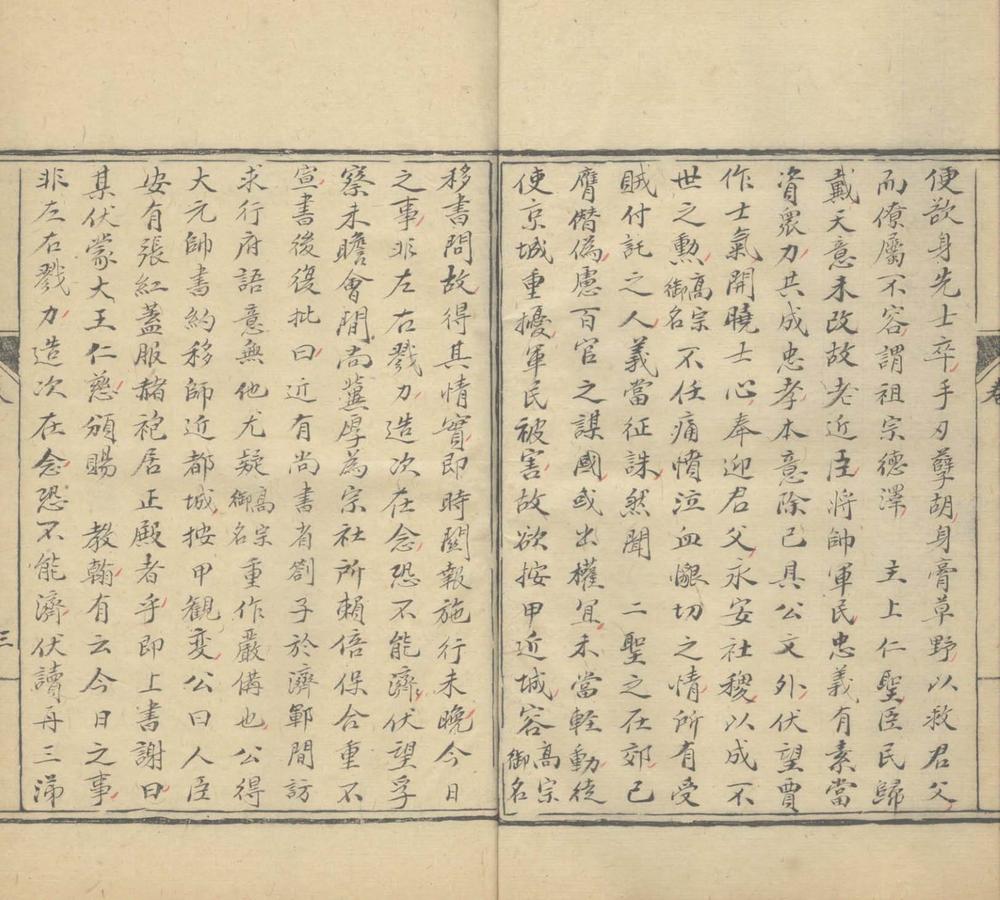 便欲身先士卒手刃孽胡身膏草野以救君父
而僚屬不容謂祖宗德澤　主上仁聖臣民歸
戴天意未改故老近臣將帥軍民忠義有素當
資衆力共成忠孝本意除已具公文外伏望賈
作士氣開曉士心奉迎君父永安社稷以成不
世之勲高宗御名不任痛憤泣血懇切之情所有受
賊付託之人義當征誅然聞　二聖之在郊已
膺僭偽慮百官之謀國或出權宜未當輕動徒
使京城重擾軍民被害故欲按甲近城容高宗御名
移書問故得其情實即時關報施行未晚今日
之事非左右戮力造次在念恐不能濟伏望孚
察未瞻會間尚冀厚為宗社所賴倍保合重不
宣書後復批曰近有尚書省劄子於濟鄆間訪
求行府語意無他尤疑高宗御名重作嚴備也公得
大元帥書約移師近都城按甲観変公曰人臣
安有張紅蓋服赭袍居正殿者乎即上書謝曰
某伏蒙大王仁慈頒賜　教翰有云今日之事
非左右戮力造次在念恐不能濟伏讀再三涕
卷
三